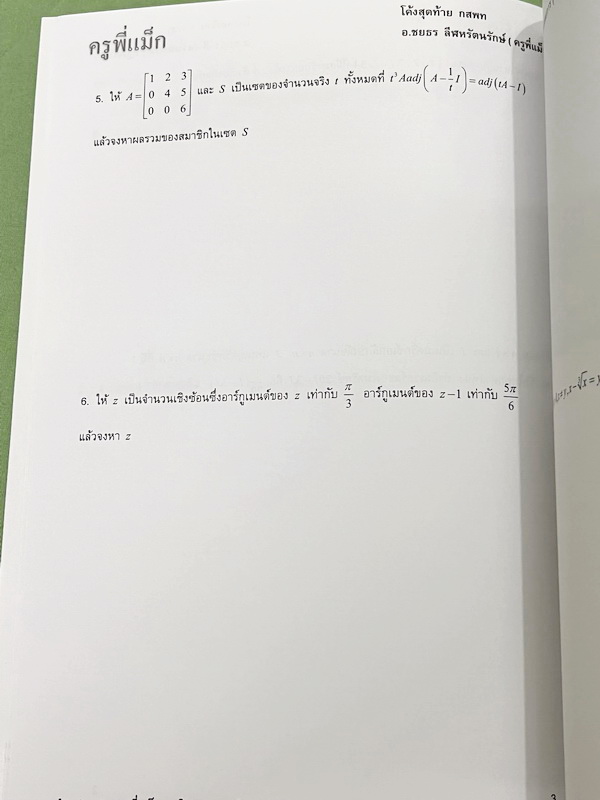 ครูพี่แม็ก
โค้งสุดท้าย กสพท
อ.ชยธร ลีฬหรัตนรักษ์ ( ครูพี่แม็
5. ให้ A = [1 2 3; 0 4 5; 0 0 6] และ S เป็นเซตของจำนวนจริง t ทั้งหมดที่ t³Aadj(A − 1/t I) = adj(tA − I)
แล้วจงหาผลรวมของสมาชิกในเซต S
6. ให้ z เป็นจำนวนเชิงซ้อนซึ่งอาร์กูเมนต์ของ z เท่ากับ π/3 อาร์กูเมนต์ของ z−1 เท่ากับ 5π/6
แล้วจงหา z
3